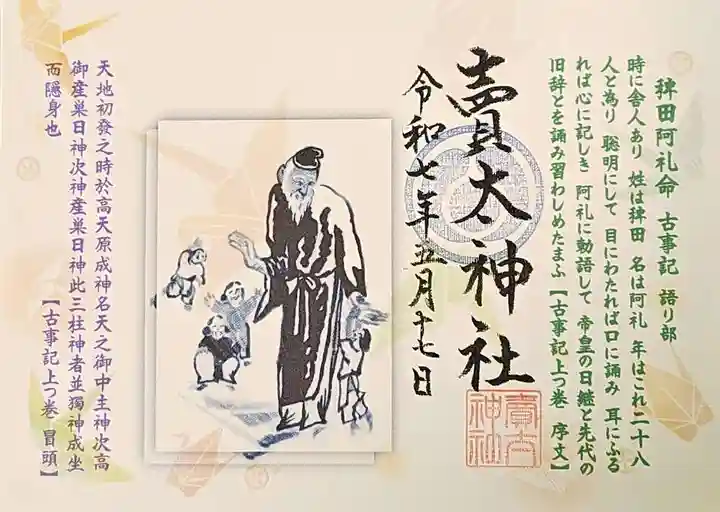 稗田阿礼命　古事記　語り部
時に舎人あり　姓は稗田　名は阿礼　年はこれ二十八
人と為り　聡明にして　目にわたれば口に誦み　耳にふる
れば心に記しき　阿礼に勅語して　帝皇の日継と先代の
旧辞とを誦み習わしめたまふ【古事記上つ巻　序文】
賣太神社
令和七年五月十七日
賣太
神社
天地初發之時於高天原成神名天之御中主神次高
御産巣日神次神産巣日神此三柱神者並獨神成坐
而隠身也
【古事記上つ巻　冒頭】